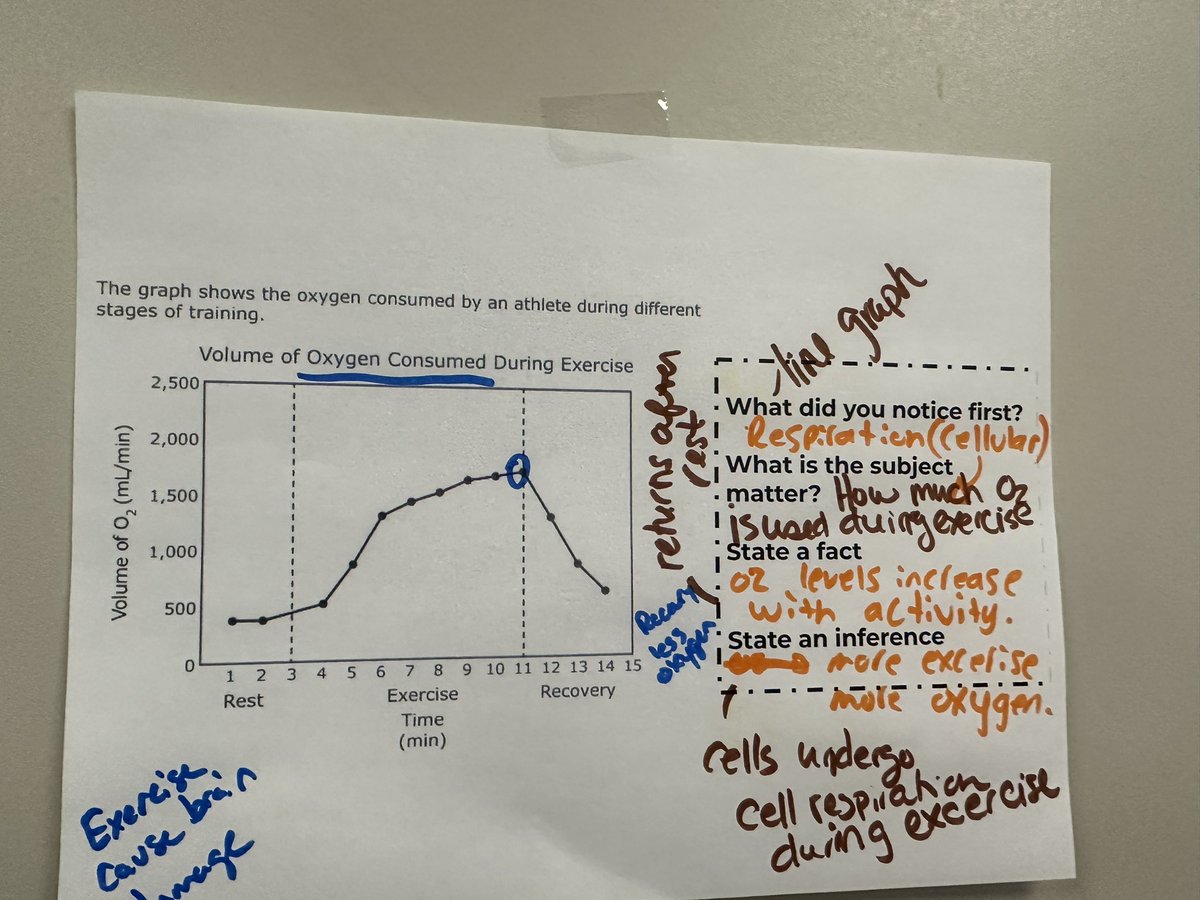 The graph shows the oxygen consumed by an athlete during different
stages of training.
Volume of Oxygen Consumed During Exercise
2,500
2,000
1,500
1,000
500
0
Volume of O2 (mL/min)
1 2 3 4 5 6 7 8 9 10 11 12 13 14 15
Rest Exercise Recovery
Time
(min)
line graph
What did you notice first?
Respiration (cellular)
What is the subject
matter? How much O2
is used during exercise
State a fact
O2 levels increase
with activity.
State an inference
more excerise
more oxygen.
returns after
rest
less
oxygen
cells undergo
cell respiration
during excercise
Exercise
cause brain